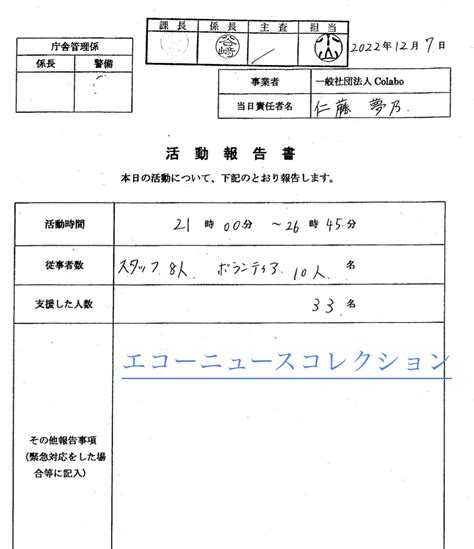 課長 係長 主査 担当
2022年12月7日
庁舎管理係
係長 警備
事業者 一般社団法人 Colabo
当日責任者名 仁藤 夢乃
活動報告書
本日の活動について、下記のとおり報告します。
活動時間 21時00分 ～26時45分
従事者数 スタッフ 8人 ボランティア 10人 名
支援した人数 33名
エコーニュースコレクション
その他報告事項
(緊急対応をした場
合等に記入)